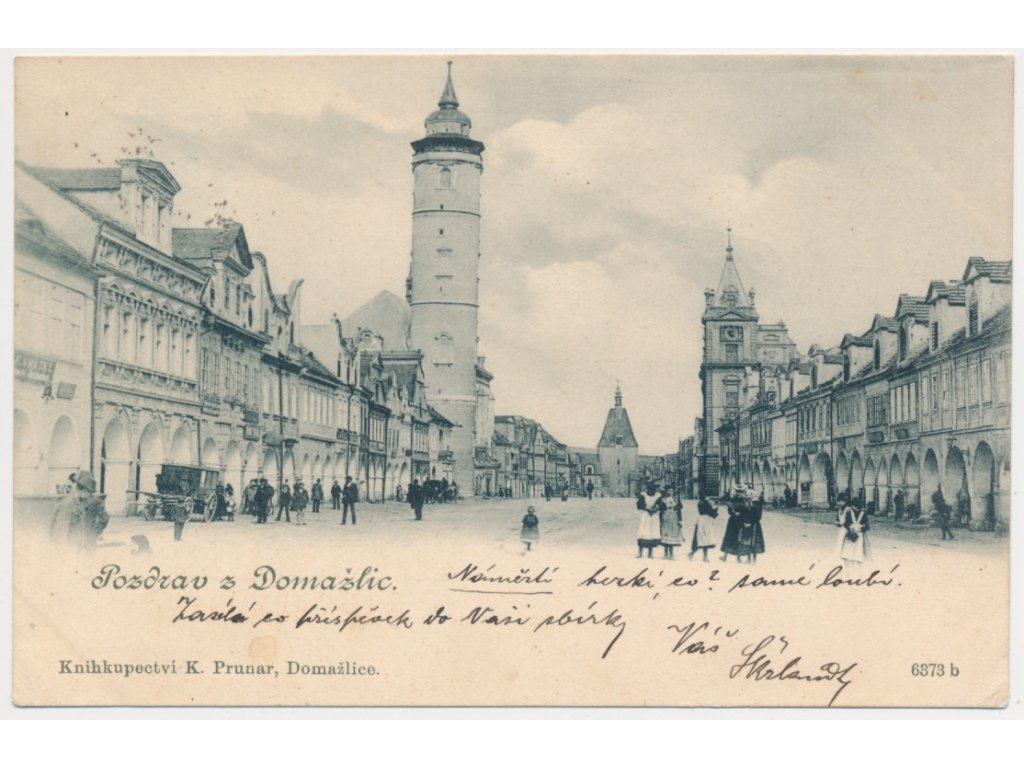 Pozdrav z Domažlic.
Náměstí hezké, co? samé loubí.
Zasílá co příspěvek do Vaší sbírky
Váš
Knihkupectvi K. Prunar, Domažlice.
6373 b